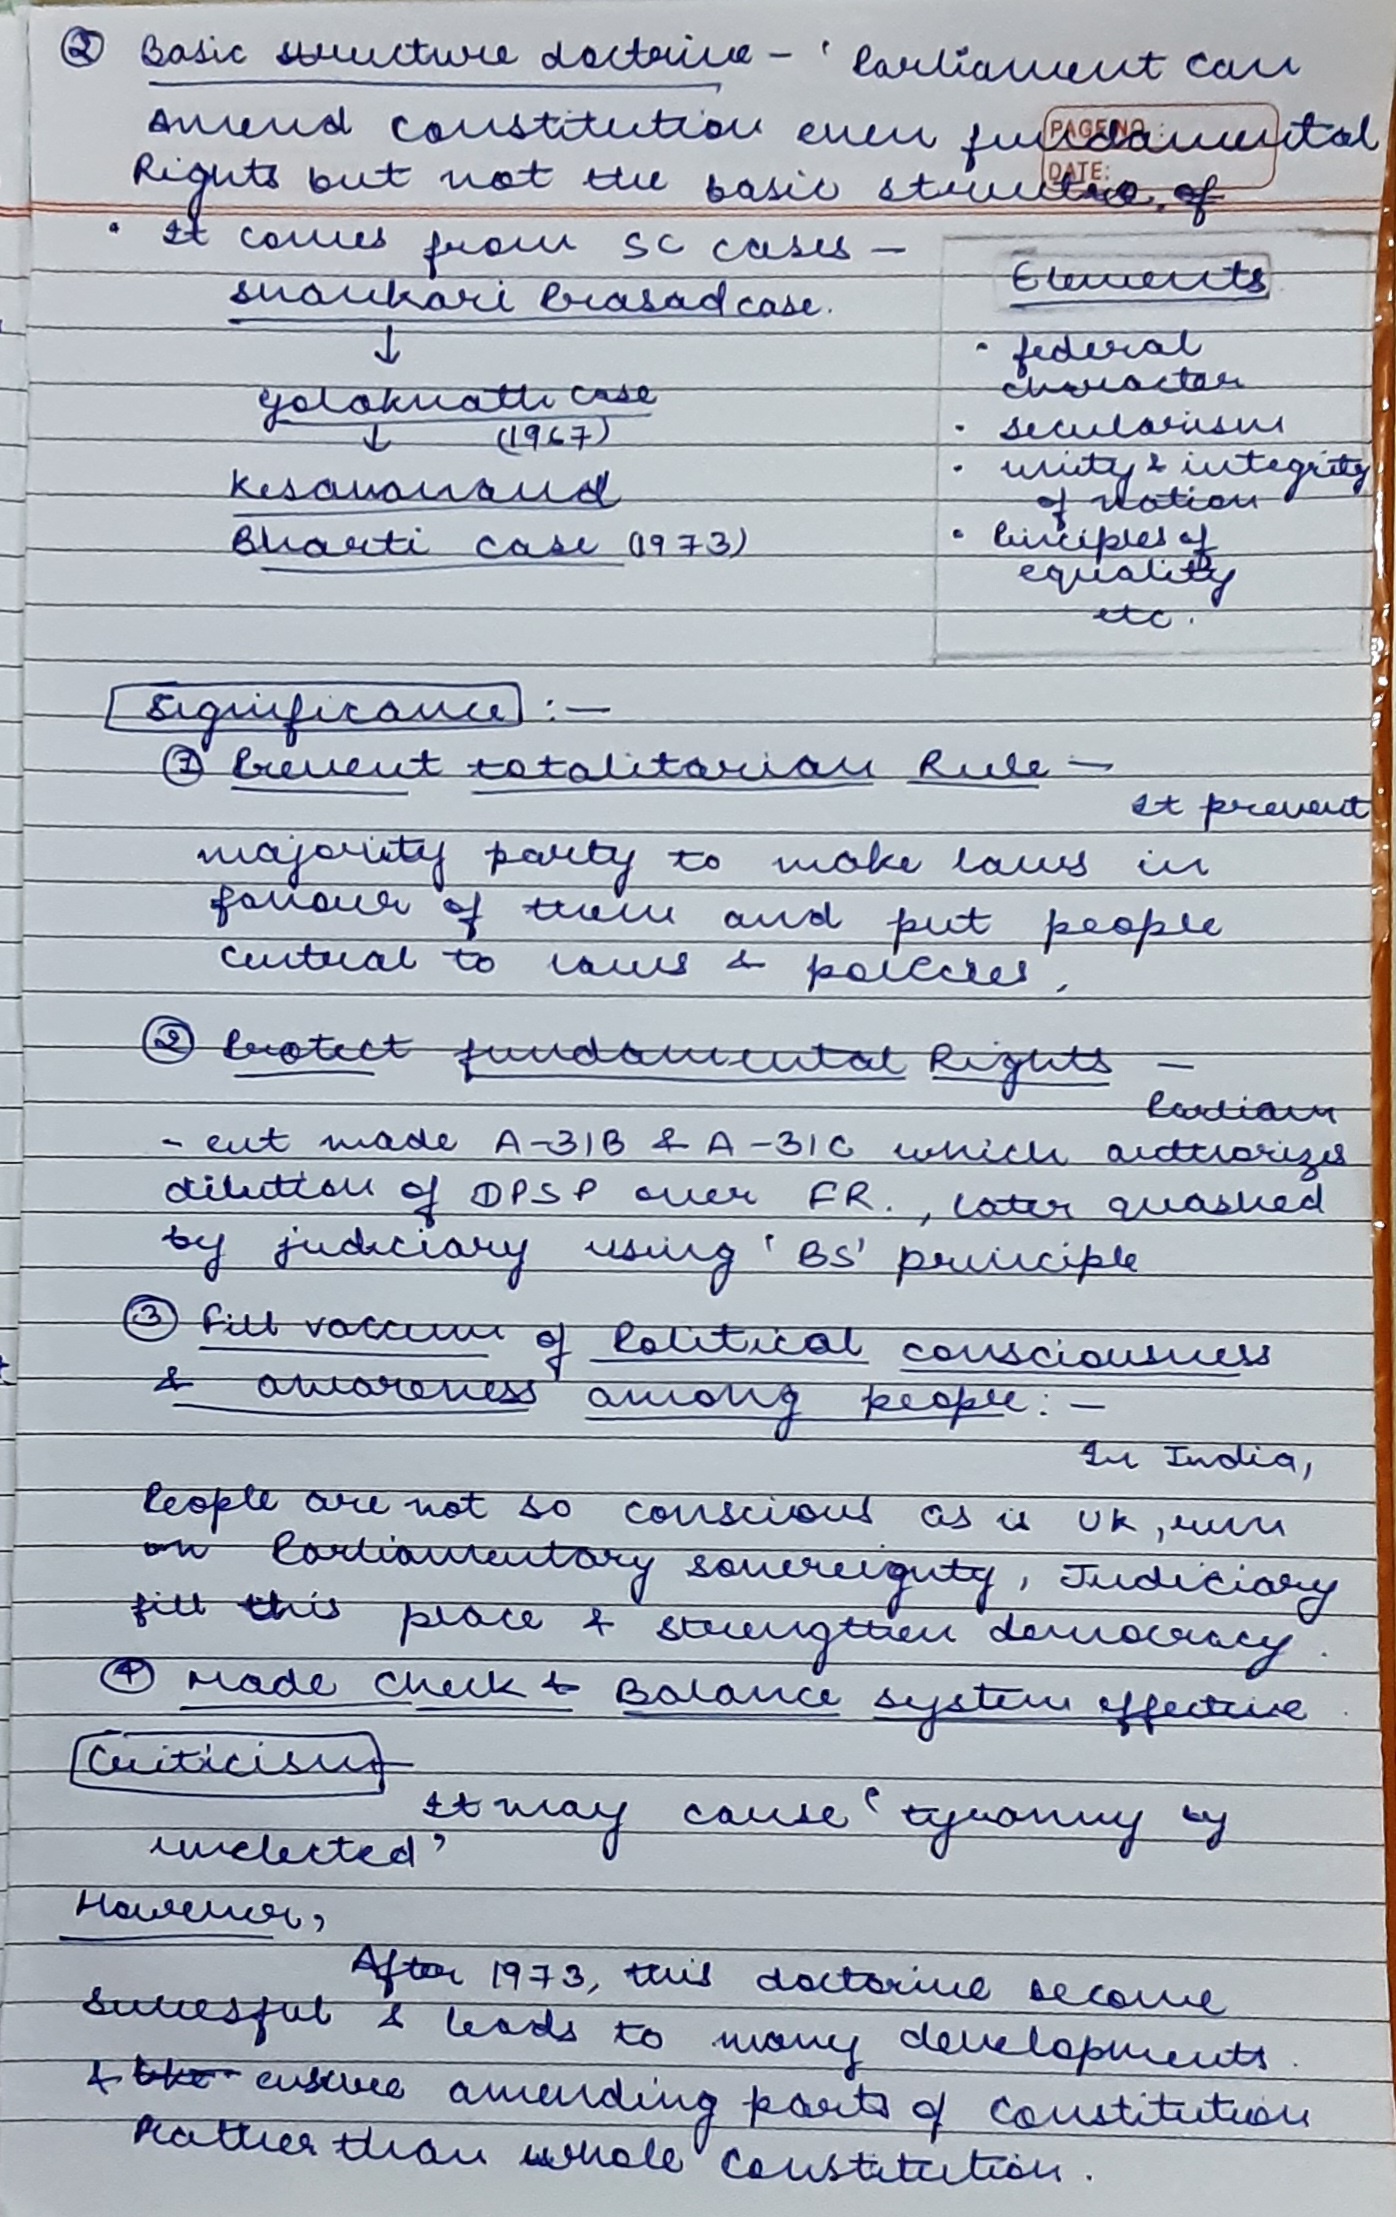 ② Basic structure doctrine - ' Parliament can
Amend constitution even fundamental
PAGE NO.:
DATE:
Rights but not the basic structure of
• It comes from SC cases -
Shankari Prasad case.
↓
Golaknath case
↓ (1967)
Kesavanand
Bharti case (1973)
Elements
• federal
character
• secularism
• unity & integrity
of nation
• Principles of
equality
etc.
Significance :-
① Prevent totalitarian Rule -
It prevent
majority party to make laws in
favour of them and put people
central to laws & policies.
② Protect fundamental Rights -
Parliam
- ent made A-31B & A-31C which authorizes
dilution of DPSP over FR., later quashed
by judiciary using 'BS' principle
③ Fill vaccum of Political consciousness
& awareness among people :-
In India,
People are not so conscious as is UK, run
on Parliamentary sovereignty, Judiciary
fill this place & strengthen democracy.
④ Made Check & Balance system effective.
Criticism -
It may cause 'tyranny by
unelected'
However,
After 1973, this doctorine become
sucessful & leads to many developments.
& ensure amending parts of constitution
Rather than whole constitution.